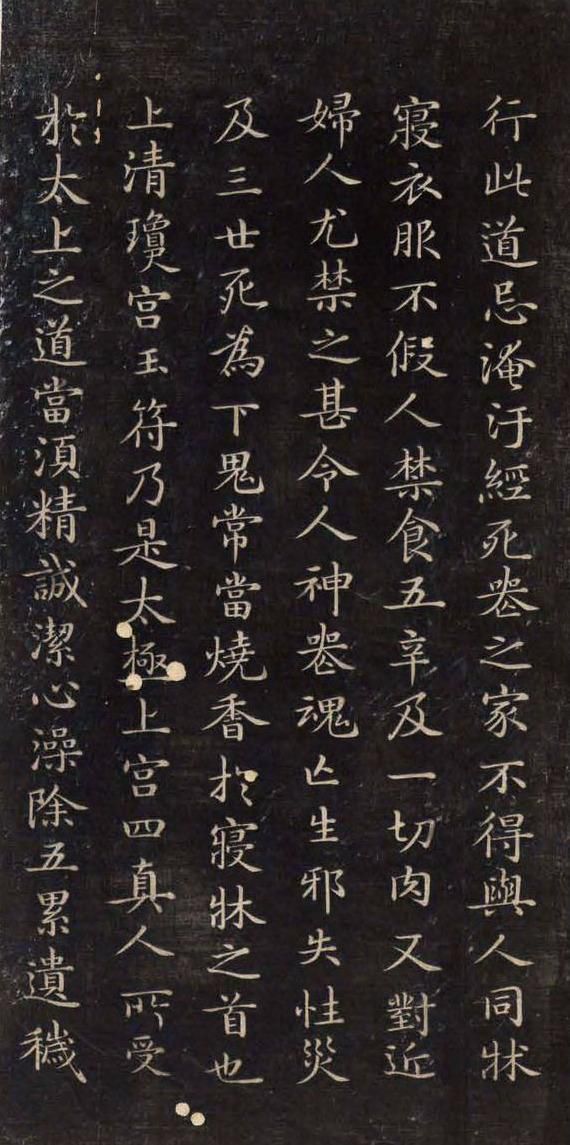 行此道忌淹汙經死䘮之家不得與人同牀
寢衣服不假人禁食五辛及一切肉又對近
婦人尤禁之甚令人神䘮魂亡生邪失性災
及三世死為下鬼常當燒香於寢牀之首也
上清瓊宮玉符乃是太極上宮四真人所受
於太上之道當須精誠潔心澡除五累遺穢